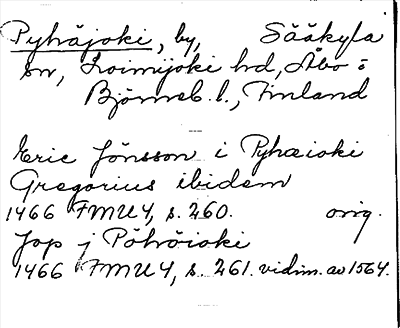 Pyhäjoki, by, Sääkyla
sn, Loimijoki hd, Åbo o
Björneb. l., Finland
Eric Jönsson i Pyhæioki
Gregorius ibidem
1466 FMU 4, s. 260. orig.
Jop j Pöhöioki
1466 FMU 4, s. 261. vidim. av 1564.